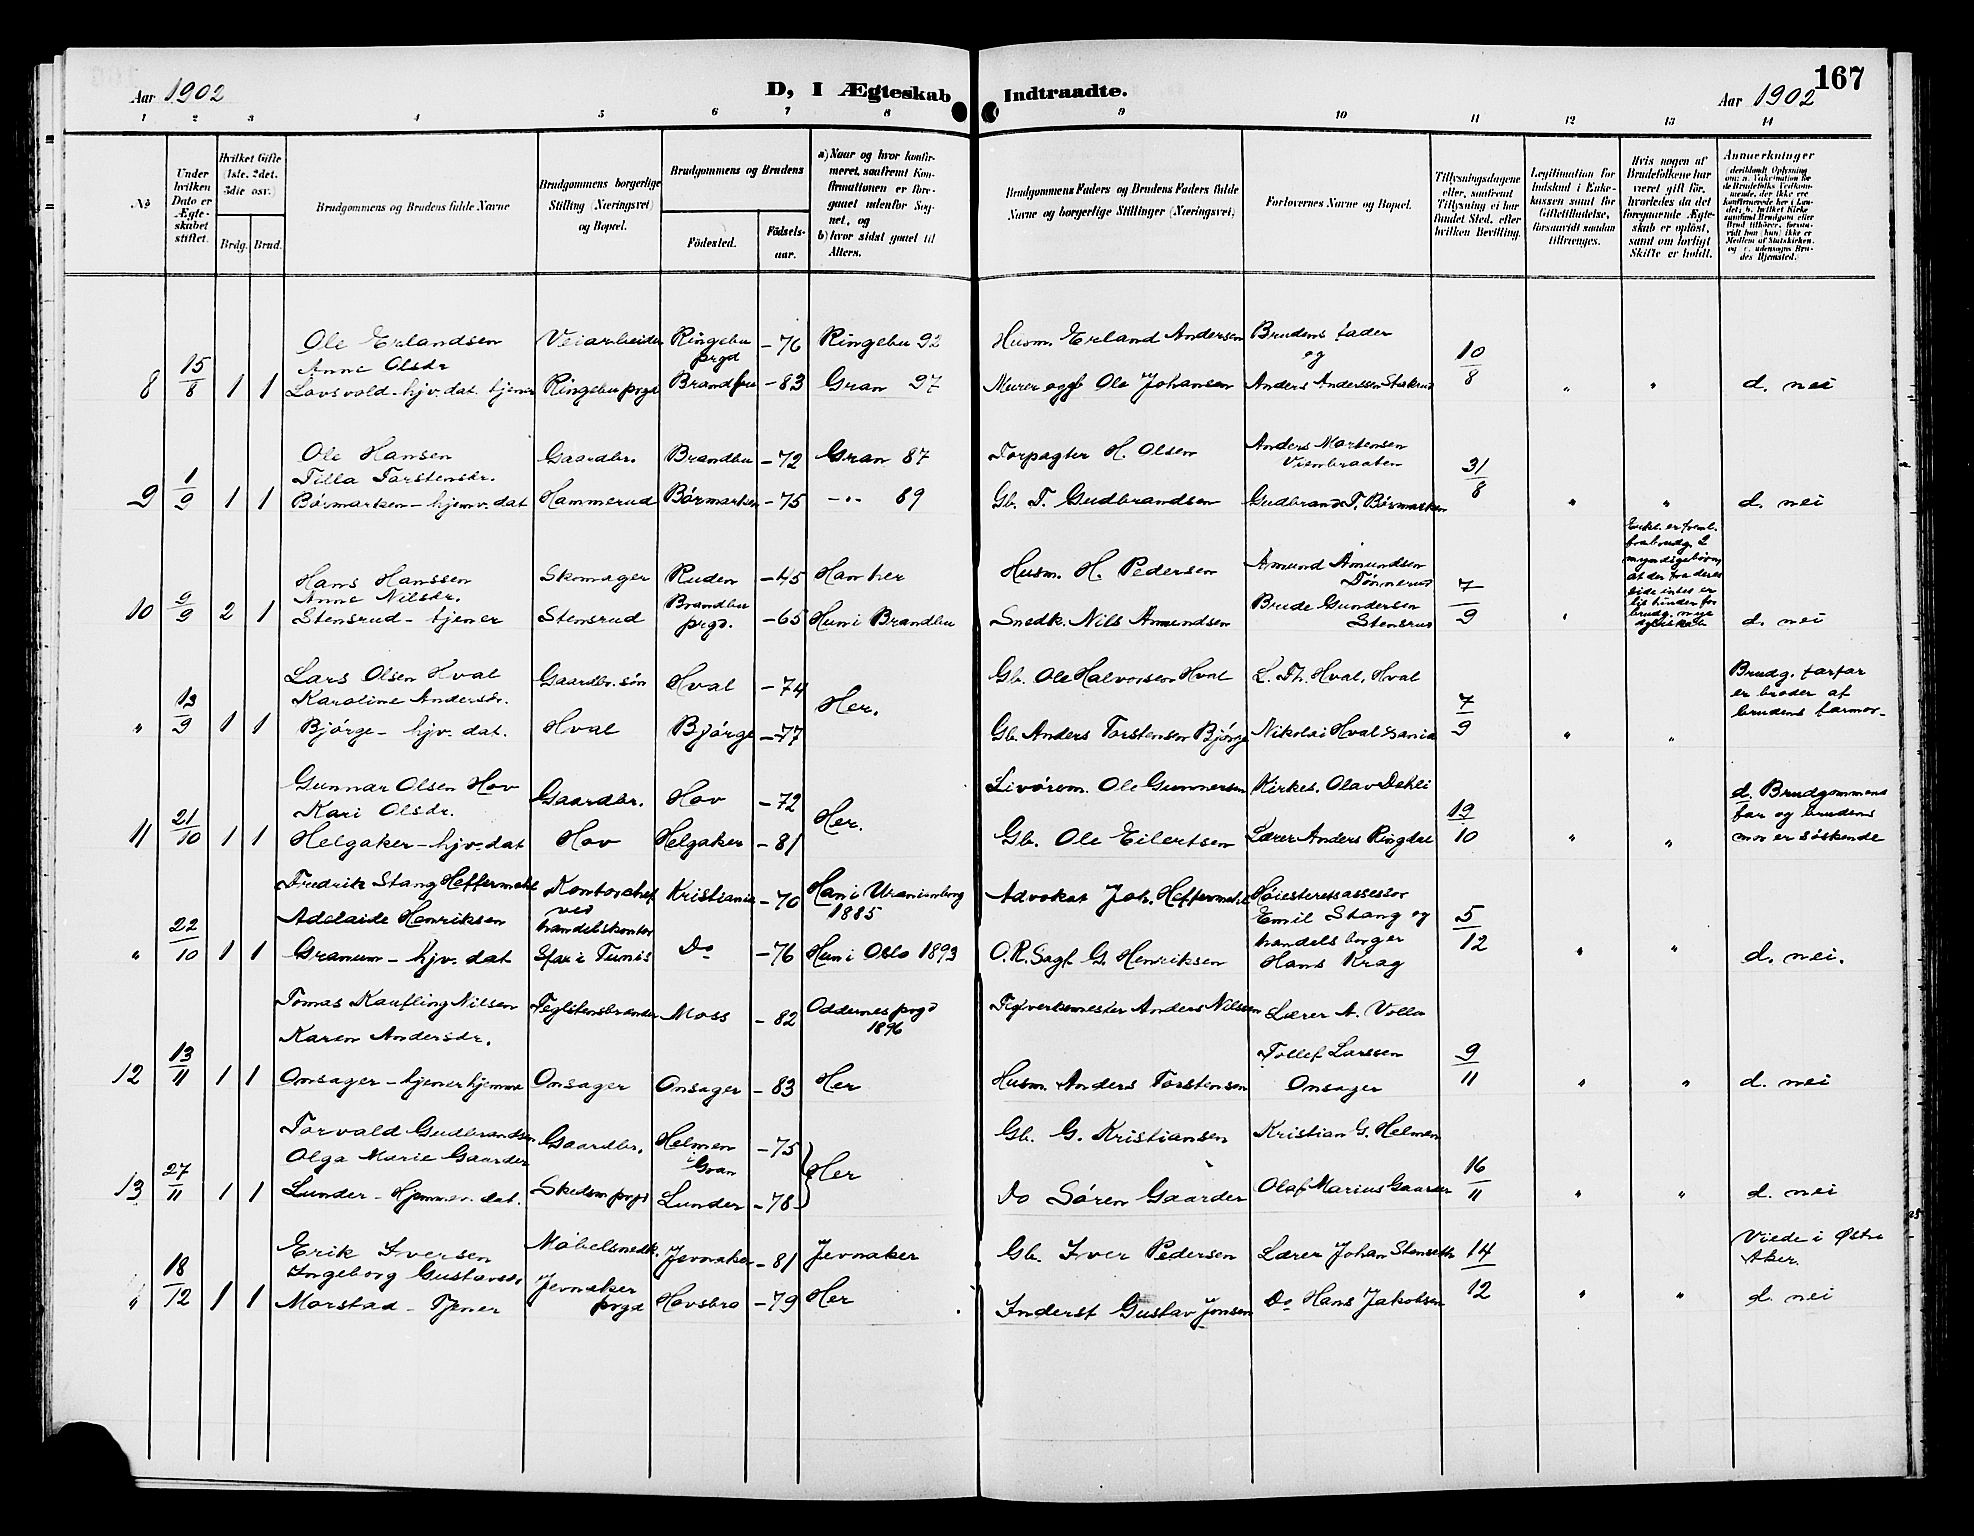 167
Aar 1902
D, I Ægteskab Indtraadte.
Aar 1902
1 2 3 4 5 6 7 8 9 10 11 12 13 14
No
Under hvilken Dato er Ægteskabet stiftet.
Hvilket Gifte (1ste, 2det, 3die osv.)
Brdg. Brud.
Brudgommens og Brudens fulde Navne
Brudgommens borgerlige Stilling (Næringsvei) og Bopæl.
Brudgommens og Brudens
Födested.
Födselsaar.
a) Naar og hvor konfirmeret, saafremt Konfirmationen er foregaaet udenfor Sognet, og
b) hvor sidst gaaet til Alters.
Brudgommens Faders og Brudens Faders fulde Navne og borgerlige Stillinger (Næringsvei)
Forlovernes Navne og Bopæl.
Tillysningsdagene eller, saafremt Tillysning ei har fundet Sted, efter hvilken Bevilling.
Legitimation for Indskud i Enkekassen samt for Giftetilladelse, forsaavidt saadan tiltrænges.
Hvis nogen af Brudefolkene har været gift før, hvorledes da det foregaaende Ægteskab er opløst, samt om lovligt Skifte er holdt.
Anmærkninger
Ole Erlandsen Veiarbeider Ringebu -76 Ringebu 92 Husm. Erland Andersen Brudens fader
15 Anne Olsdr prgd og 10
8 8 1 1 Lovsvold - hjv. dat. tjener Ringebu prgd Brandbu -83 Gran 97 Murer og gb Ole Johansen Anders Andersen 8 " " d. nei
Ole Hansen Gaardbr. Brandbu -72 Gran 87 Forpagter H. Olsen Anders Martensen
1 Tilla Torstensdr. Vienbraaten 31
9 9 1 1 Børmarken - hjemv. dat Hammerud Børmarken -75 -"- 89 Gb. T. Gudbrandsen Gudbrand T. Børmarken 8 " " d. nei
Hans Hanssen Skomager Ruden -45 Han her Husm. H. Pedersen Amund Amundsen
9 Anne Nilsdr. Brandbu Tønnerud 7
10 9 2 1 Stensrud - tjener Stensrud prgd. -65 Hun i Brandbu Snedk. Nils Amundsen Brude Gundersen Stensrud 9 " d. nei
Lars Olsen Hval Gaardbr. søn Hval -74 Her. Gb. Ole Halvorsen Hval L. Th. Hval, Hval Brudg. farfar
13 Karoline Andersdr. 7 er broder af
" 9 1 1 Bjørge - hjv. dat. Hval Bjørge -77 Gb. Anders Torstensen Bjørge Nikolai Hval 9 " " brudens farmor -
Gunnar Olsen Hov Gaardbr. Hov -72 Her. Livørem. Ole Gunnersen Kirkes. Olav Dæhli d. Brudgommens
21 Kari Olsdr. 19 far og brudens
11 10 1 1 Helgaker - hjv. dat Hov Helgaker -81 Gb. Ole Eilertsen Lærer Anders Ringdal 10 " " mor er søskende
Fredrik Stang Heffermehl Kontorchef Kristiania -70 Han i Uranienborg 1885 Advokat Joh. Heffermehl Høiesteretsassessor
22 Adelaide Henriksen ved handelskontor Emil Stang og 5
" 10 1 1 Granum - hjv. dat i Tunis Do -76 Hun i Oslo 1893 O.R.Sagf. G. Henriksen handelsborger Hans Krag 12 " " d. nei.
Tomas Kaufling Nilsen Teglstensbrænder Moss -82 Oddernes prgd 1896 Teglverksmester Anders Nilssen Lærer A. Volla
13 Karen Andersdr. Tollef Larssen 9
12 11 1 1 Onsager - hjener hjemme Onsager Onsager -83 Her Husm. Anders Torstenson Onsager 11 " " d. nei
Torvald Gudbrandsen Gaardbr. Helmen -75 Her Gb. G. Kristiansen Kristian G. Helmen
27 Olga Marie Gaarder i Gran 16
13 11 1 1 Lunder - Hjemmev. dat. Skedsm prgd Lunder -78 Do Søren Gaarder Olaf Marius Gaarder 11 " " d. nei
Erik Iversen Møbelsnedk. Jevnaker -81 Jevnaker Gb. Iver Pedersen Lærer Johan Stenseth 14 Viede i Østre
18 Ingeborg Gustavsdr Jevnaker Aker.
" 12 1 1 Morstad - Tjener prgd Hovsbro -79 Her Inderst Gustav Jonsen Do Hans Jakobsen 12 " " d. nei